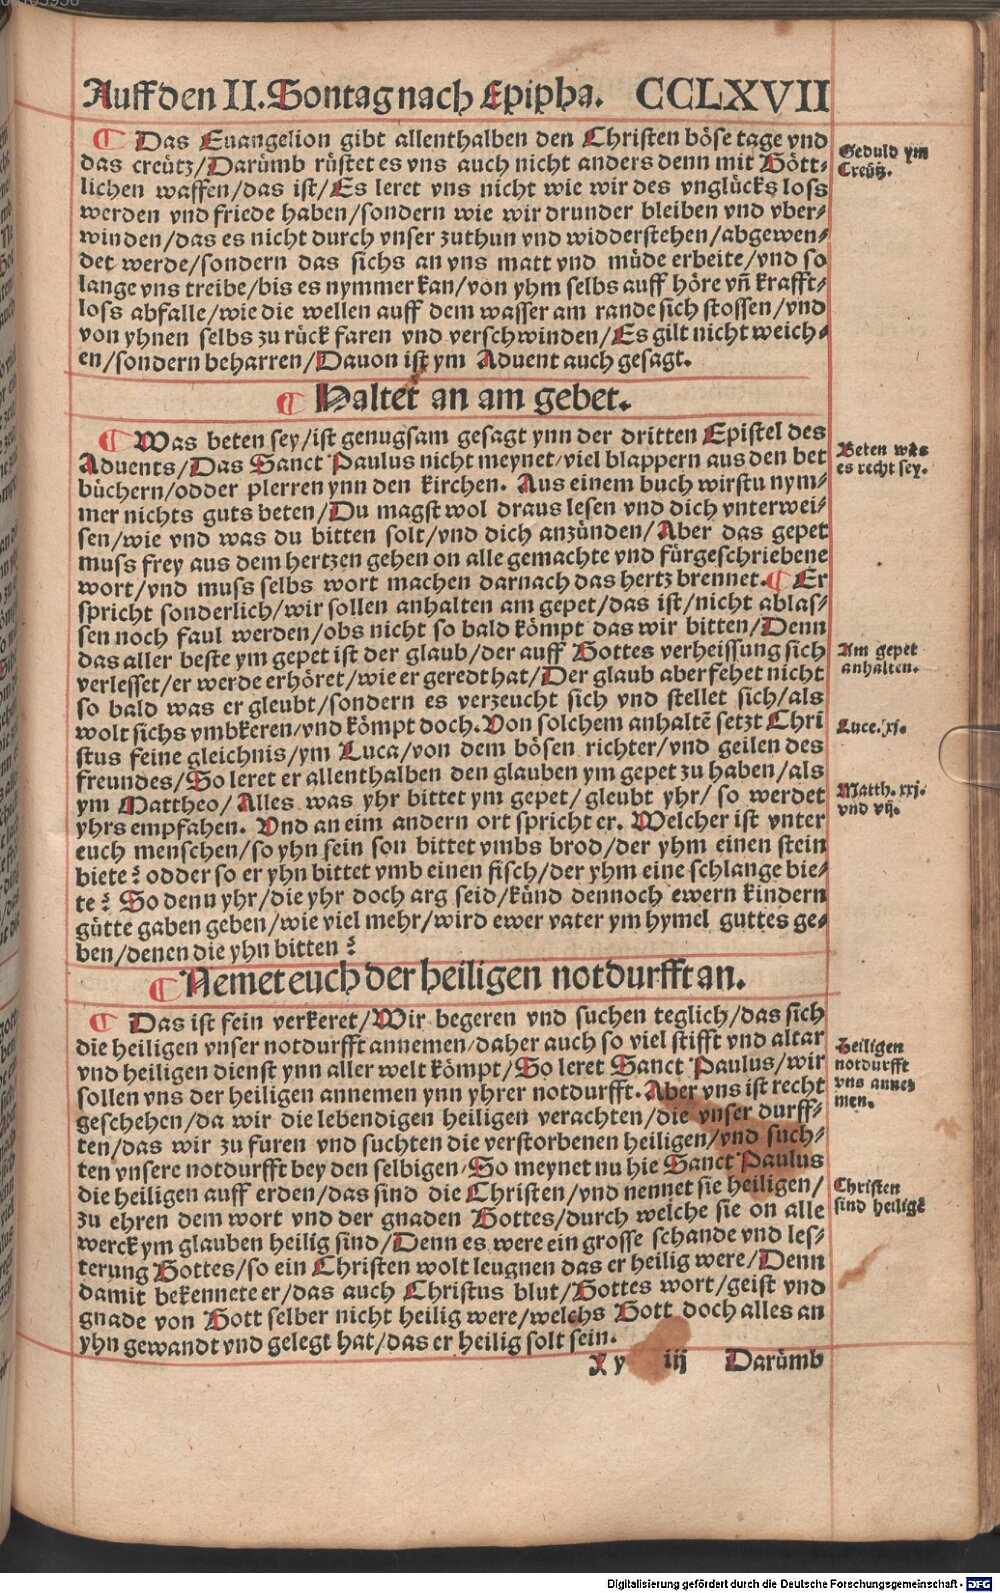 Auff den II. Sontag nach Epipha. CCLXVII
¶ Das Euangelion gibt allenthalben den Christen böse tage vnd
das creütz/Darümb rüstet es vns auch nicht anders denn mit Gött-
lichen waffen/das ist/Es leret vns nicht wie wir des vnglücks loss
werden vnd friede haben/sondern wie wir drunder bleiben vnd vber-
winden/das es nicht durch vnser zuthun vnd widderstehen/abgewen-
det werde/sondern das sichs an vns matt vnd müde erbeite/vnd so
lange vns treibe/bis es nymmer kan/von yhm selbs auff höre vñ krafft-
loss abfalle/wie die wellen auff dem wasser am rande sich stossen/vnd
von yhnen selbs zu rück faren vnd verschwinden/Es gilt nicht weich-
en/sondern beharren/Dauon ist ym Aduent auch gesagt.
Geduld ym
Creütz.
¶ Haltet an am gebet.
¶ Was beten sey/ist genugsam gesagt ynn der dritten Epistel des
Aduents/Das Sanct Paulus nicht meynet/viel blappern aus den bet
büchern/odder plerren ynn den kirchen. Aus einem buch wirstu nym-
mer nichts guts beten/Du magst wol draus lesen vnd dich vnterwei-
sen/wie vnd was du bitten solt/vnd dich anzünden/Aber das gepet
muss frey aus dem hertzen gehen on alle gemachte vnd fürgeschriebene
wort/vnd muss selbs wort machen darnach das hertz brennet. ¶ Er
spricht sonderlich/wir sollen anhalten am gepet/das ist/nicht ablas-
sen noch faul werden/obs nicht so bald kömpt das wir bitten/Denn
das aller beste ym gepet ist der glaub/der auff Gottes verheissung sich
verlesset/er werde erhöret/wie er geredt hat/Der glaub aber fehet nicht
so bald was er gleubt/sondern es verzeucht sich vnd stellet sich/als
wolt sichs vmbkeren/vnd kömpt doch. Von solchem anhaltẽ setzt Chri
stus feine gleichnis/ym Luca/von dem bösen richter/vnd geilen des
freundes/So leret er allenthalben den glauben ym gepet zu haben/als
ym Mattheo/Alles was yhr bittet ym gepet/gleubt yhr/so werdet
yhrs empfahen. Vnd an eim andern ort spricht er. Welcher ist vnter
euch menschen/so yhn sein son bittet vmbs brod/der yhm einen stein
biete? odder so er yhn bittet vmb einen fisch/der yhm eine schlange bie-
te? So denn yhr/die yhr doch arg seid/künd dennoch ewern kindern
gütte gaben geben/wie viel mehr/wird ewer vater ym hymel guttes ge-
ben/denen die yhn bitten?
Beten was
es recht sey.
Am gepet
anhalten.
Luce. xj.
Matth. xxj.
vnd vij.
¶ Nemet euch der heiligen notdurfft an.
¶ Das ist fein verkeret/Wir begeren vnd suchen teglich/das sich
die heiligen vnser notdurfft annemen/daher auch so viel stifft vnd altar
vnd heiligen dienst ynn aller welt kömpt/So leret Sanct Paulus/wir
sollen vns der heiligen annemen ynn yhrer notdurfft. Aber vns ist recht
geschehen/da wir die lebendigen heiligen verachten/die vnser durff-
ten/das wir zu furen vnd suchten die verstorbenen heiligen/vnd such-
ten vnsere notdurfft bey den selbigen/So meynet nu hie Sanct Paulus
die heiligen auff erden/das sind die Christen/vnd nennet sie heiligen/
zu ehren dem wort vnd der gnaden Gottes/durch welche sie on alle
werck ym glauben heilig sind/Denn es were ein grosse schande vnd les-
terung Gottes/so ein Christen wolt leugnen das er heilig were/Denn
damit bekennete er/das auch Christus blut/Gottes wort/geist vnd
gnade von Gott selber nicht heilig were/welchs Gott doch alles an
yhn gewandt vnd gelegt hat/das er heilig solt sein.
Heiligen
notdurfft
vns annez
men.
Christen
sind heiligẽ
Xy iij Darümb
Digitalisierung gefördert durch die Deutsche Forschungsgemeinschaft - DFG